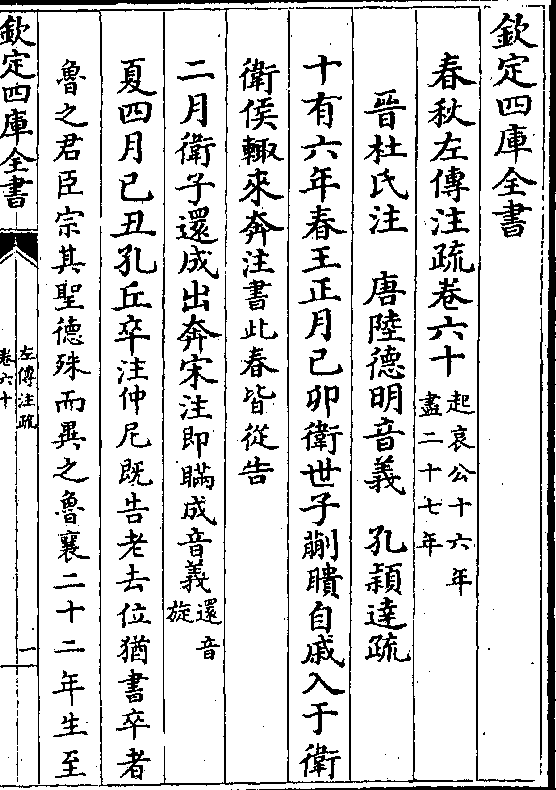 欽定四庫全書
春秋左傳注疏卷六十
起哀公十六年
盡二十七年
晉杜氏注　唐陸德明音義　孔穎達疏
十有六年春王正月己卯衛世子蒯聵自戚入于衛
衛侯輒來奔注書此春皆從告
二月衛子還成出奔宋注即瞞成音義
還音
旋
夏四月己丑孔丘卒注仲尼既告老去位猶書卒者
魯之君臣宗其聖德殊而異之魯襄二十二年生至
欽定四庫全書
左傳注疏
卷六十
一